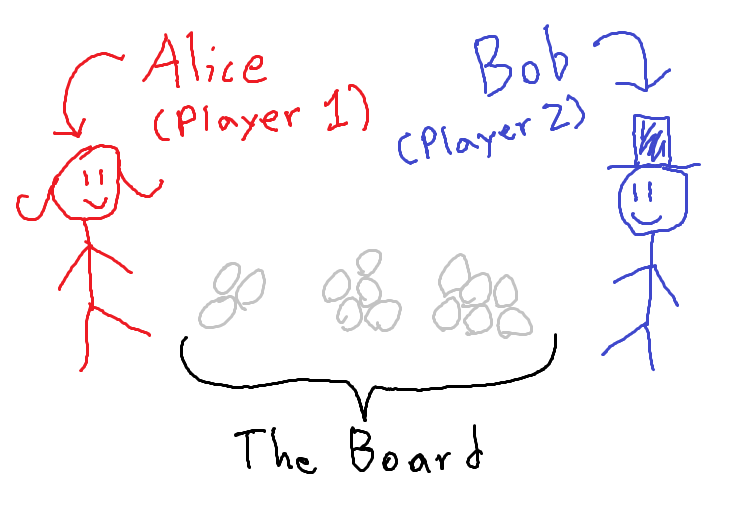 Alice
(Player 1)
Bob
(Player 2)
The Board